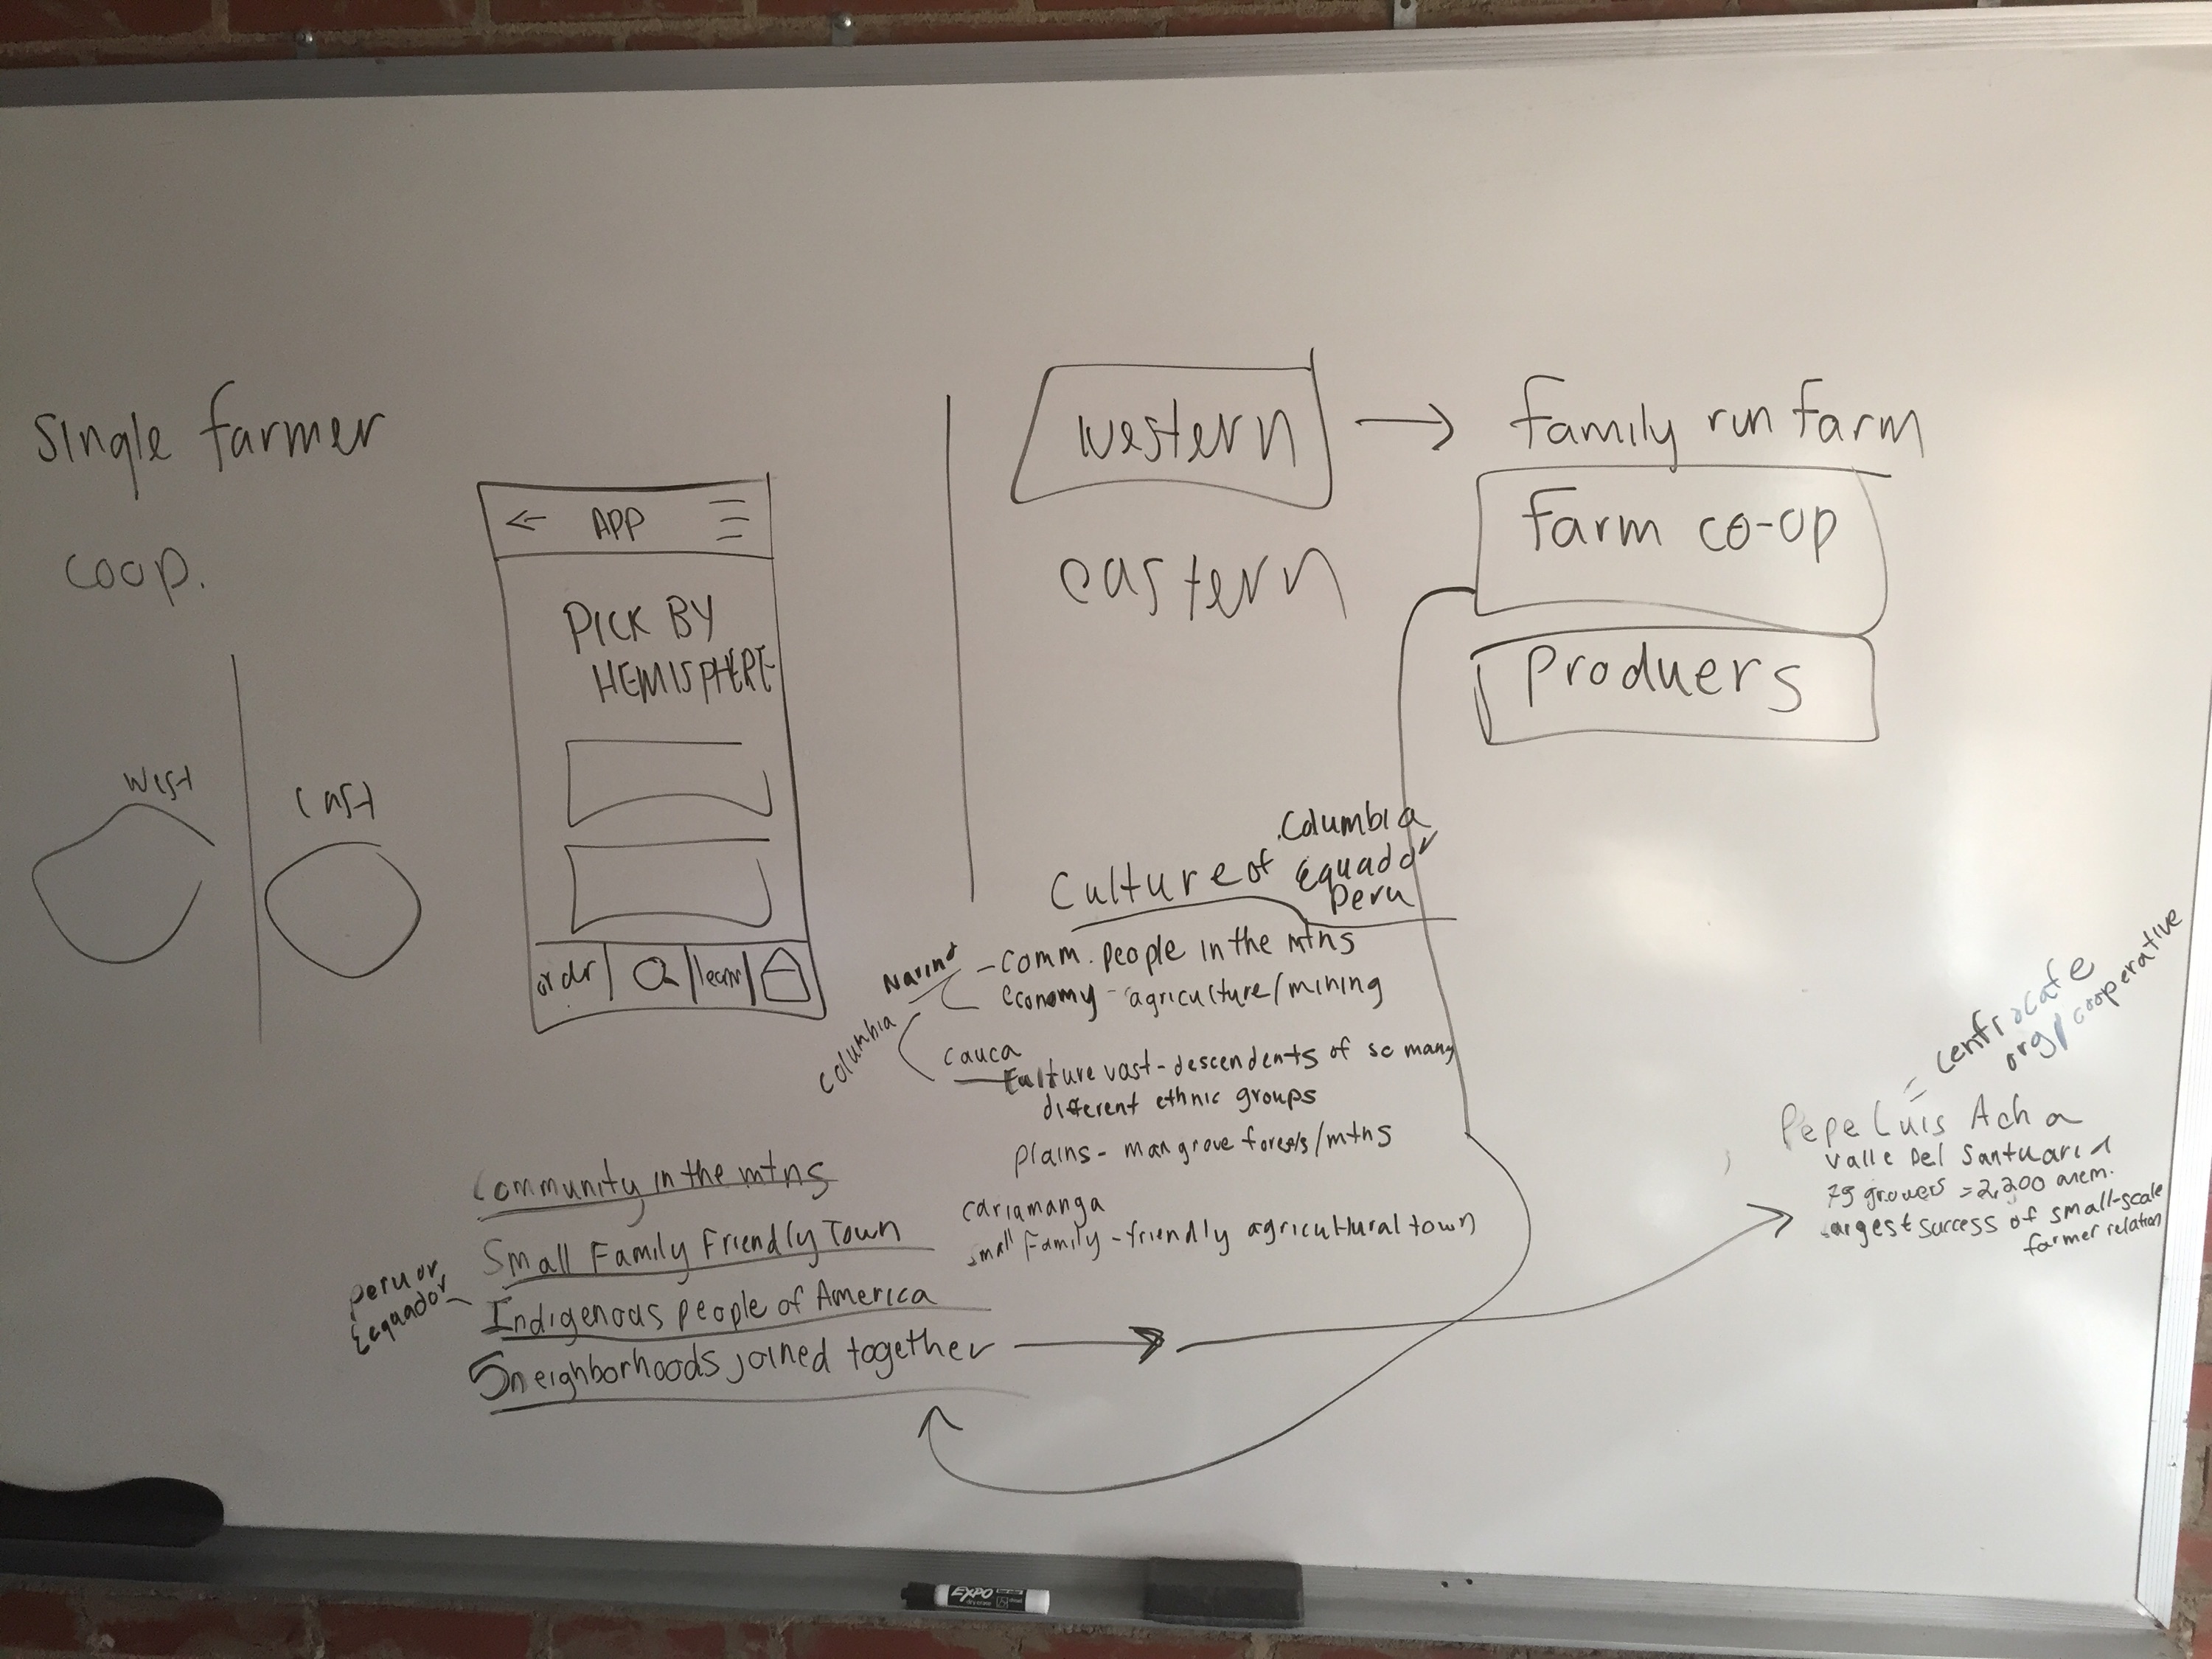 single farmer
coop.
West
East
← APP
PICK BY
HEMISPHERE
order
learn
western → family run farm
eastern
farm co-op
Produers
Culture of
Columbia
Equador
Peru
Narino
- comm. people in the mtns
economy - agriculture/mining
Columbia
cauca
Culture vast - descendents of so many
different ethnic groups
plains - mangrove forests/mtns
cariamanga
small family-friendly agricultural town
Community in the mtns
Small Family Friendly Town
peru or
Ecquador
Indigenous people of America
5 neighborhoods joined together →
= centrocafe
org/cooperative
Pepe Luis Acha
Valle Del Santuario
growers = 2,200 mem.
largest success of small-scale
farmer relation
EXPO
dry erase